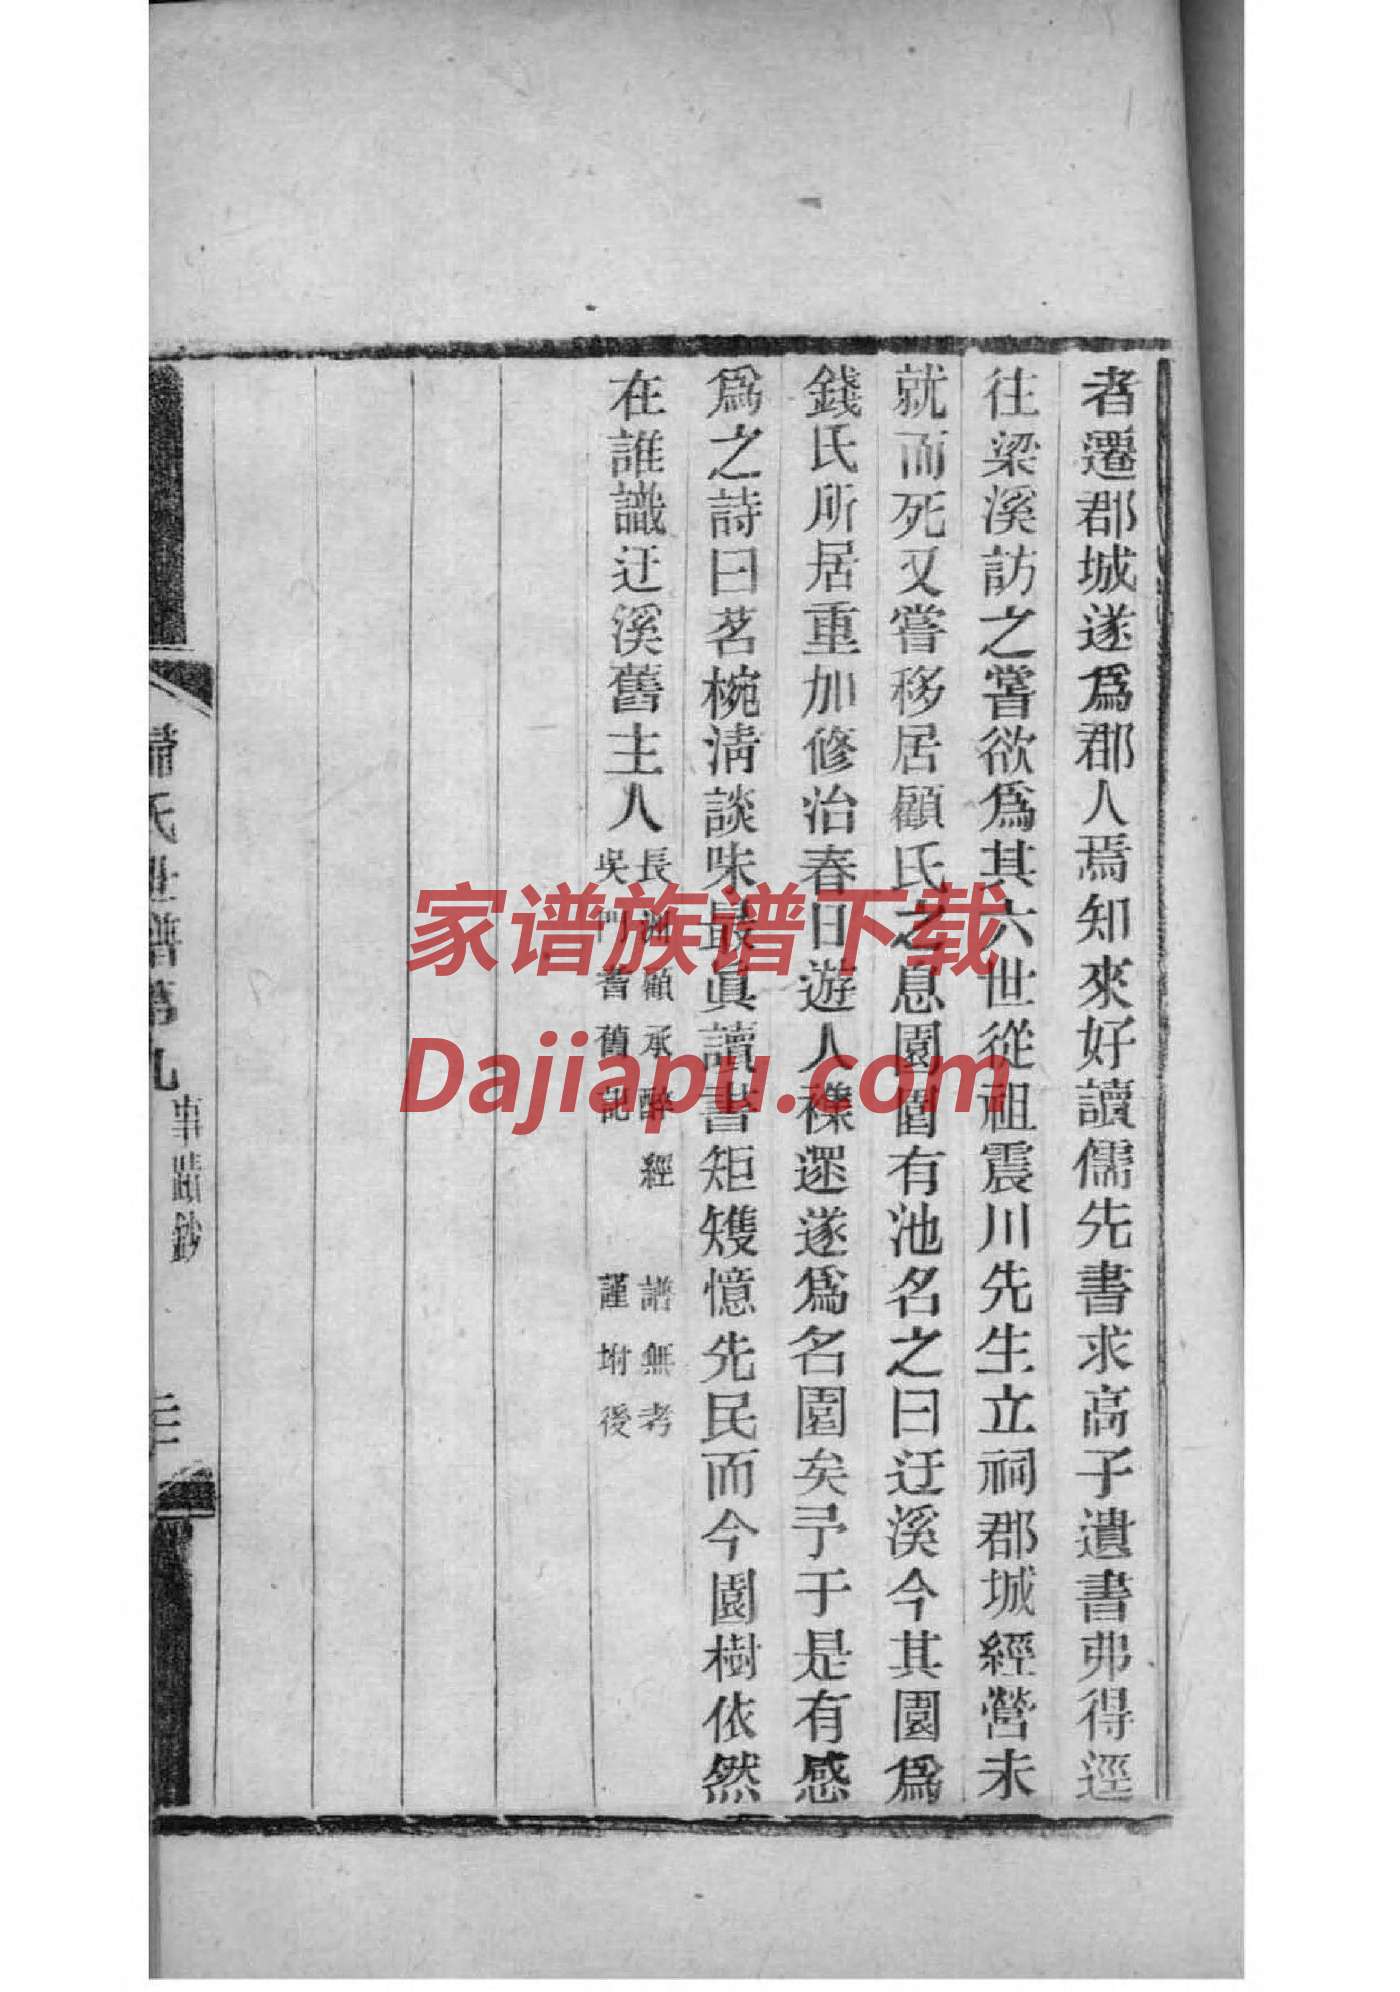 者遷郡城遂爲郡人焉知來好讀儒先書求高子遺書弗得逕
往梁溪訪之嘗欲爲其六世從祖震川先生立祠郡城經營未
就而死又嘗移居顧氏之息園園有池名之曰迂溪今其園爲
錢氏所居重加修治春日遊人襍遝遂爲名園矣予于是有感
爲之詩曰茗椀淸談味最眞讀書矩矱憶先民而今園樹依然
在誰識迂溪舊主人
長洲顧承醉經 譜無考
吳門耆舊記 謹坿後
歸氏世譜第九 事蹟鈔
家谱族谱下载
Dajiapu.com